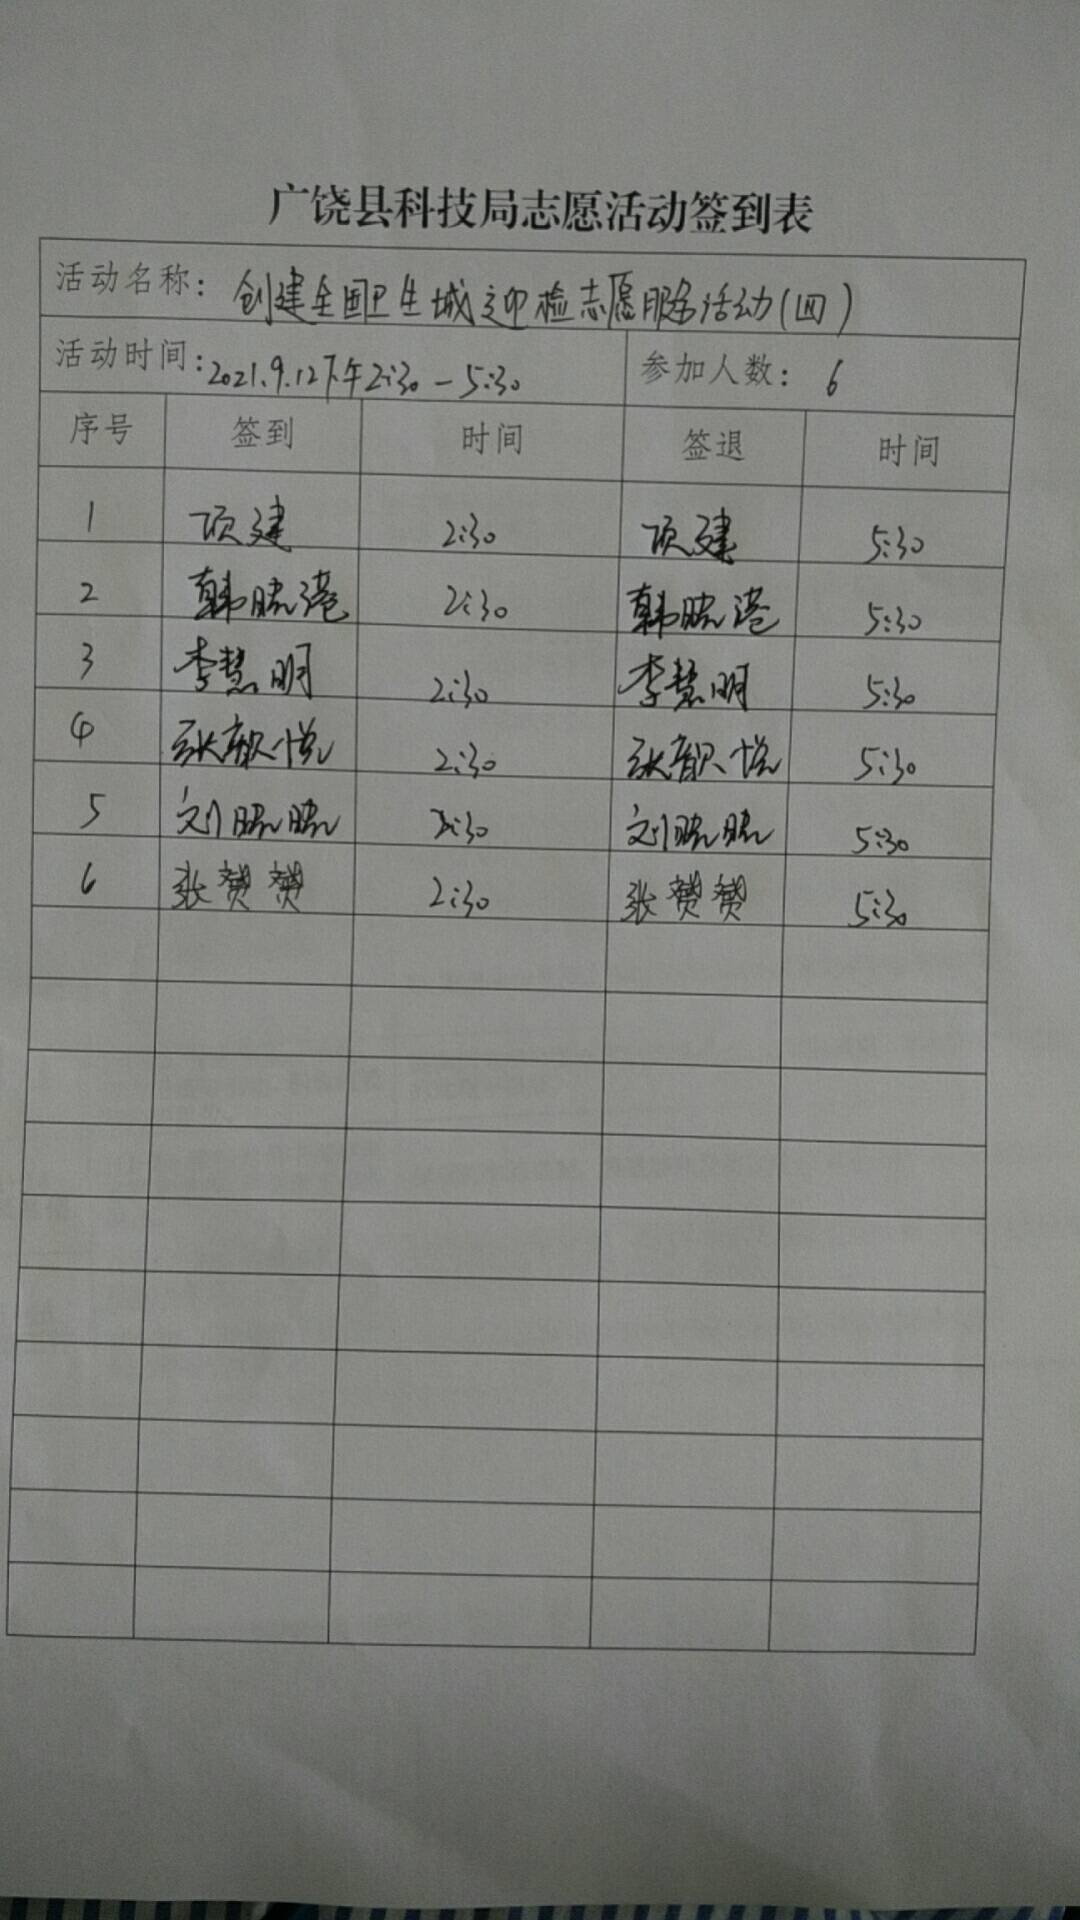 广饶县科技局志愿活动签到表
活动名称：创建全国卫生城迎检志愿服务活动(四)
活动时间：2021.9.12下午2:30-5:30 参加人数：6
序号 签到 时间 签退 时间
1 项建 2:30 项建 5:30
2 韩晓港 2:30 韩晓港 5:30
3 李慧明 2:30 李慧明 5:30
4 张歆悦 2:30 张歆悦 5:30
5 刘晓晓 2:30 刘晓晓 5:30
6 张赟赟 2:30 张赟赟 5:30